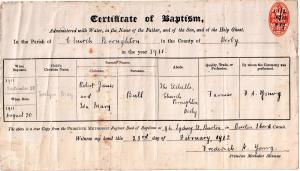 Certificate of Baptism,
Administered with Water, in the Name of the Father, and of the Son, and of the Holy Ghost.
In the Parish of Church Broughton in the County of Derby
in the year 1911.
When Baptized. Child's Christian Name. Parents' Names. Abode. Quality, Trade, or Profession. By whom the Ceremony was performed.
Christian. Surname.
1911
September
When Born.
1911
August 20
May
Robert James
and
Ida Mary
Bull
Church
Broughton
Derby
Farmer
F. H. Young
The above is a true Copy from the PRIMITIVE METHODIST Register Book of Baptisms at Sydney St, Burton, in Burton Circuit.
Witness my hand this 23rd day of February 1912
Frederick H. Young
Primitive Methodist Minister.